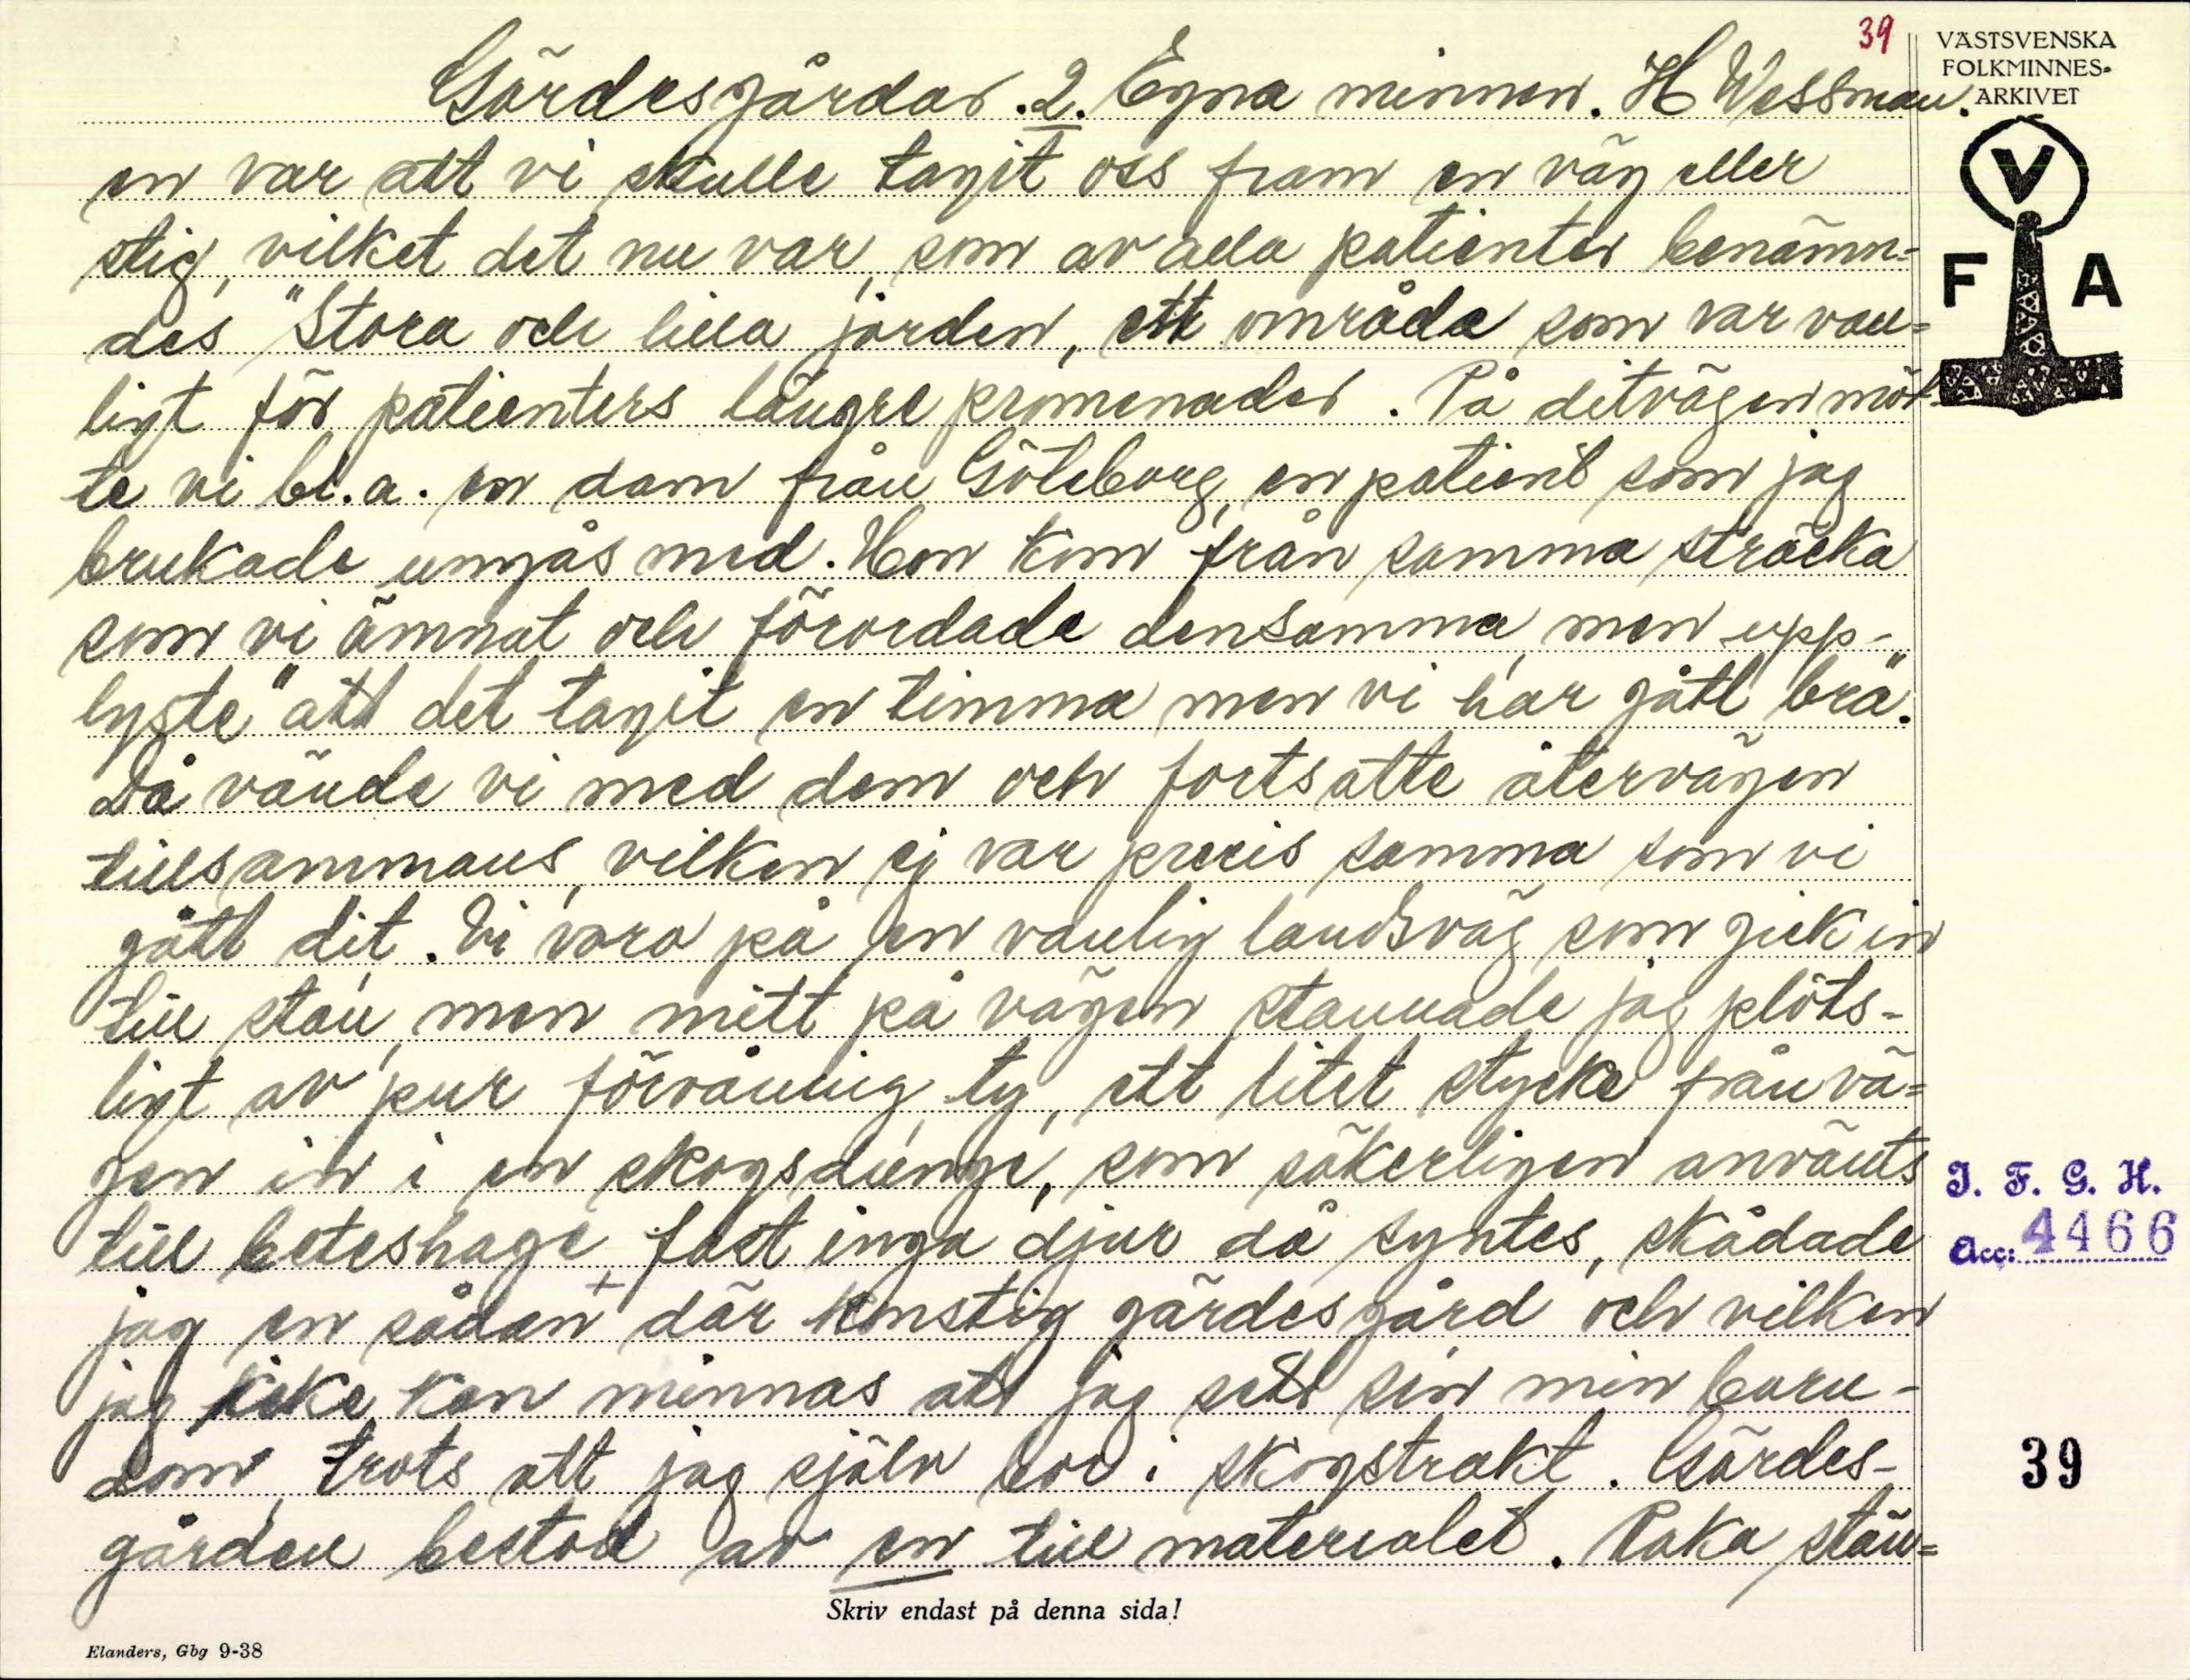 39
VÄSTSVENSKA
FOLKMINNES-
ARKIVET
Gärdesgårdar. 2. Egna minnen. H Wessman.
en var att vi skulle tagit oss fram en väg eller
stig, vilket det nu var, som av alla patienter benämn=
des "Stora och lilla jorden, ett område som var van=
ligt för patienters längre promenader. På ditvägen möt-
te vi bl.a. en dam från Göteborg, en patient som jag
brukade umgås med. Hon kom från samma sträcka
som vi ämnat och förordade densamma, men upp-
lyste "att det tagit en timma men vi har gått bra".
Då vände vi med dem och fortsatte återvägen
tillsammans, vilken ej var precis samma som vi
gått dit. Vi voro på en vanlig landsväg som gick in
till stan, men mitt på vägen stannade jag plöts-
ligt av pur förvåning, ty, ett litet stycke från vä=
gen in i en skogsdunge, som säkerligen använts
till beteshage, fast inga djur då syntes, skådade
jag en sådan + där konstig gärdesgård och vilken
jag icke kan minnas att jag sett sen min barn-
dom, trots att jag själv bor i skogstrakt. Gärdes-
gården bestod av en till materialet. Raka stän=
V
F A
I. F. G. H.
Acc: 4466
39
Skriv endast på denna sida!
Elanders, Gbg 9-38